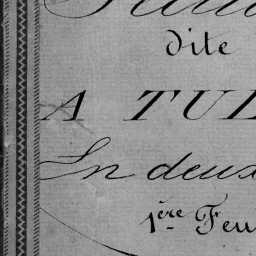 dite
A TUL
En deux
1ère Feu